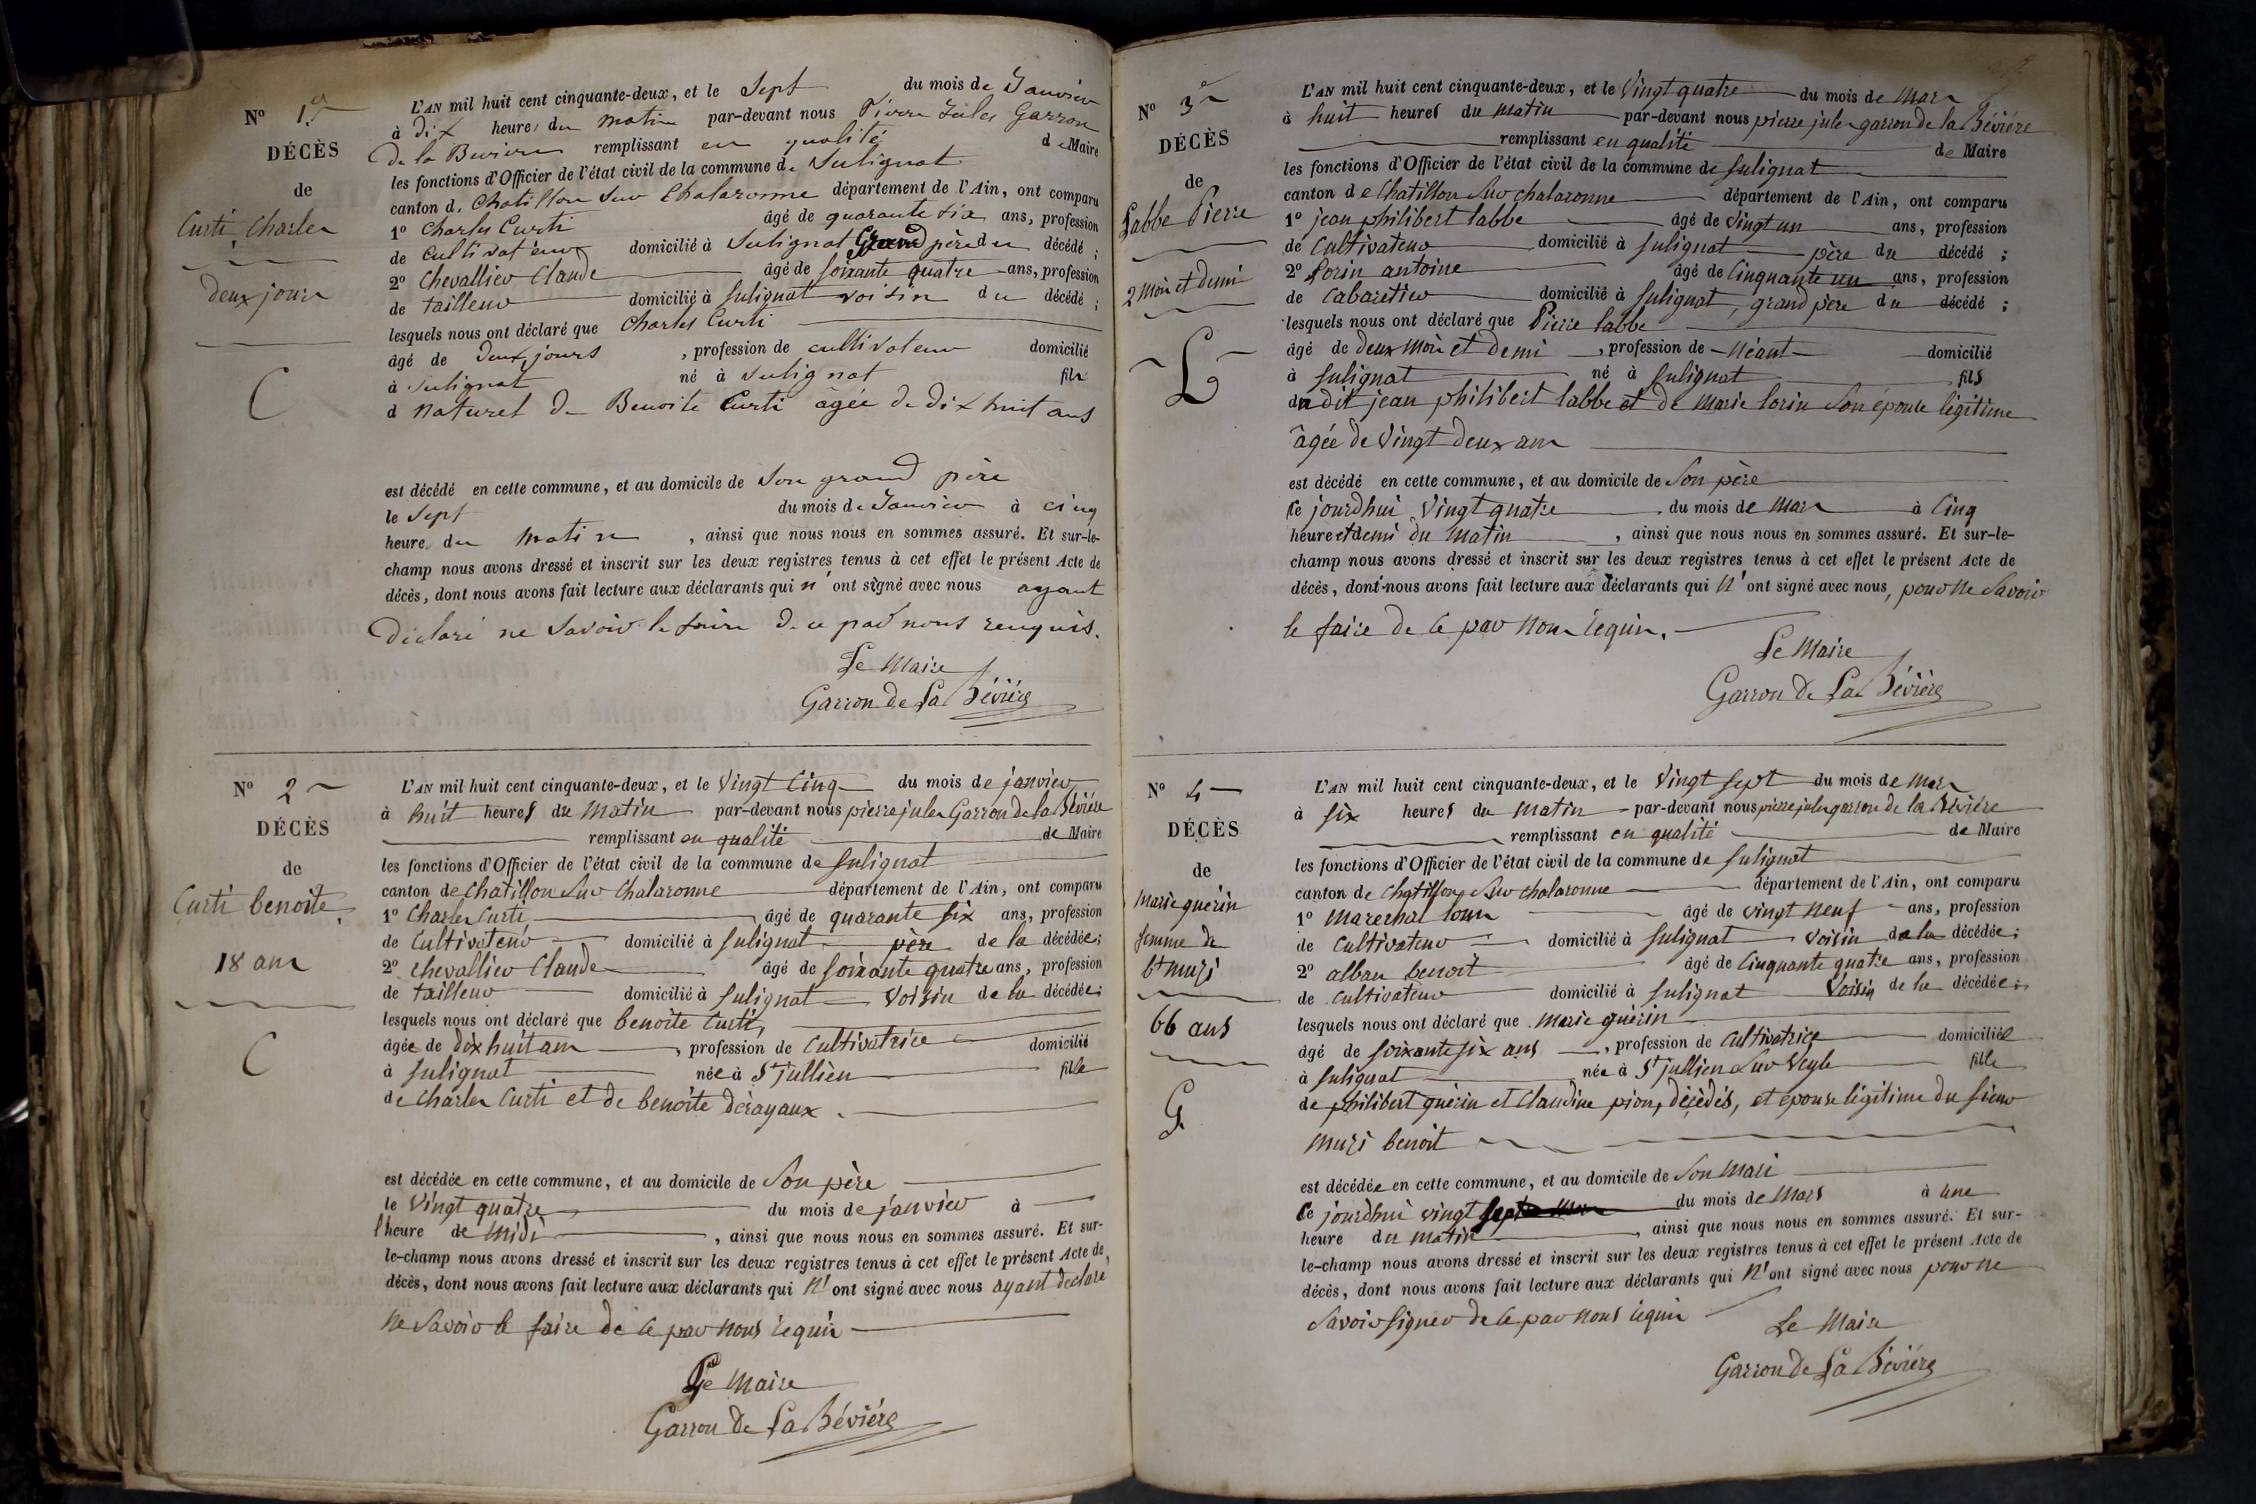 N.º 1er
DÉCÈS
de
Curti Charles
deux jours
C
L'AN mil huit cent cinquante-deux, et le Sept du mois de Janvier
à dix heures du matin par-devant nous Pierre Jules Garron
De la Beviere remplissant en qualité de Maire
les fonctions d'Officier de l'état civil de la commune de Sulignat
canton de Chatillon Sur Chalaronne département de l'Ain, ont comparu
1º Charles Curti âgé de quarante six ans, profession
de cultivateur domicilié à Sulignat Grand père du décédé ;
2º Chevallier Claude âgé de soixante quatre ans, profession
de tailleur domicilié à Sulignat voisin du décédé ;
lesquels nous ont déclaré que Charles Curti
âgé de deux jours , profession de cultivateur domicilié
à Sulignat né à Sulignat fils
d naturel De Benoite Curti âgée de dix huit ans
est décédé en cette commune, et au domicile de Son grand père
le Sept du mois de Janvier à cinq
heures du matin , ainsi que nous nous en sommes assuré. Et sur-le-
champ nous avons dressé et inscrit sur les deux registres tenus à cet effet le présent Acte de
décès, dont nous avons fait lecture aux déclarants qui n'ont signé avec nous ayant
Déclaré ne Savoir le faire De ce par nous requis.
Le Maire
Garron De La Bévière
N.º 2
DÉCÈS
de
Curti benoite
18 ans
C
L'AN mil huit cent cinquante-deux, et le Vingt Cinq du mois de janvier
à huit heures du Matin par-devant nous pierre jules Garron de la Bévière
remplissant en qualité de Maire
les fonctions d'Officier de l'état civil de la commune de Sulignat
canton de Chatillon Sur Chalaronne département de l'Ain, ont comparu
1º Charles Curti âgé de quarante six ans, profession
de Cultivateur domicilié à Sulignat père de la décédée;
2º chevallier Claude âgé de soixante quatre ans, profession
de tailleur domicilié à Sulignat Voisin de la décédée;
lesquels nous ont déclaré que benoite Curti,
âgée de dix huit ans , profession de Cultivatrice domicilié
à Sulignat née à St jullien fille
de Charles Curti et de benoite dérayaux .
est décédée en cette commune, et au domicile de Son père
le Vingt quatre du mois de janvier à
l'heure de Midi , ainsi que nous nous en sommes assuré. Et sur-
le-champ nous avons dressé et inscrit sur les deux registres tenus à cet effet le présent Acte de
décès, dont nous avons fait lecture aux déclarants qui N'ont signé avec nous ayant déclaré
Ne Savoir le faire de ce par nous requis
Le Maire
Garron De La Bévière
N.º 3
DÉCÈS
de
Labbe Pierre
2 mois et demi
L
L'AN mil huit cent cinquante-deux, et le Vingt quatre du mois de Mars
à huit heures du Matin par-devant nous pierre jules garron de la Bévière
remplissant en qualité de Maire
les fonctions d'Officier de l'état civil de la commune de Sulignat
canton de Chatillon Sur chalaronne département de l'Ain, ont comparu
1º jean philibert labbe âgé de Vingt un ans, profession
de Cultivateur domicilié à Sulignat père du décédé ;
2º Lorin antoine âgé de Cinquante un ans, profession
de Cabaretier domicilié à Sulignat, grand père du décédé ;
lesquels nous ont déclaré que Pierre labbe
âgé de deux mois et demi , profession de Néant domicilié
à Sulignat né à Sulignat fils
du dit jean philibert labbe et de Marie lorin Son épouse légitime
âgée de Vingt deux ans
est décédé en cette commune, et au domicile de Son père
Ce jourdhui Vingt quatre du mois de Mars à Cinq
heure et demi du Matin , ainsi que nous nous en sommes assuré. Et sur-le-
champ nous avons dressé et inscrit sur les deux registres tenus à cet effet le présent Acte de
décès, dont nous avons fait lecture aux déclarants qui N'ont signé avec nous, pour ne Savoir
le faire de ce par Nous requis.
Le Maire
Garron De La Bévière
N.º 4
DÉCÈS
de
Marie guérin
femme de
bt muzi
66 ans
G
L'AN mil huit cent cinquante-deux, et le Vingt Sept du mois de Mars
à six heures du Matin par-devant nous pierre jules garron de la Bévière
remplissant en qualité de Maire
les fonctions d'Officier de l'état civil de la commune de Sulignat
canton de Chatillon Sur chalaronne département de l'Ain, ont comparu
1º Marechal louis âgé de vingt Neuf ans, profession
de Cultivateur domicilié à Sulignat Voisin de la décédée;
2º alban benoit âgé de Cinquante quatre ans, profession
de Cultivateur domicilié à Sulignat Voisin de la décédée;
lesquels nous ont déclaré que Marie guérin
âgé de soixante six ans , profession de Cultivatrice domiciliée
à Sulignat née à St jullien Sur Veyle fille
de philibert guérin et Claudine pion, décédés, et épouse légitime du Sieur
Muzi benoit
est décédée en cette commune, et au domicile de Son Mari
Ce jourdhui vingt Sept du mois de Mars à une
heure du Matin , ainsi que nous nous en sommes assuré. Et sur-
le-champ nous avons dressé et inscrit sur les deux registres tenus à cet effet le présent Acte de
décès, dont nous avons fait lecture aux déclarants qui N'ont signé avec nous pour ne
Savoir signer de ce par nous requis
Le Maire
Garron De La Bévière